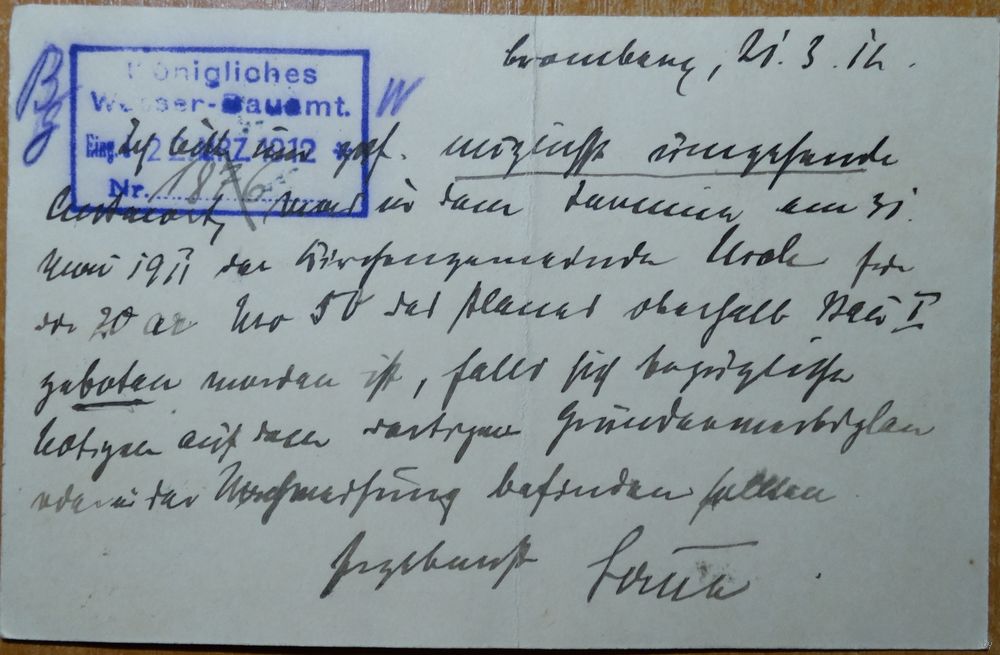 Bromberg, 21.3.12.
Königliches
Wasser-Bauamt.
Eing. 22. MRZ. 1912
Nr. 1876
Ich bitte um gef. möglichst umgehende
Antwort, was in dem Termin am 31.
Mai 1911 der Kirchengemeinde für
die 20 ar No 50 des Planes oberhalb Bau I
geboten worden ist, falls sich bezügliche
Notizen auf dem dortigen Grunderwerbsplan
oder in der Nachweisung befinden sollten
Ergebenst